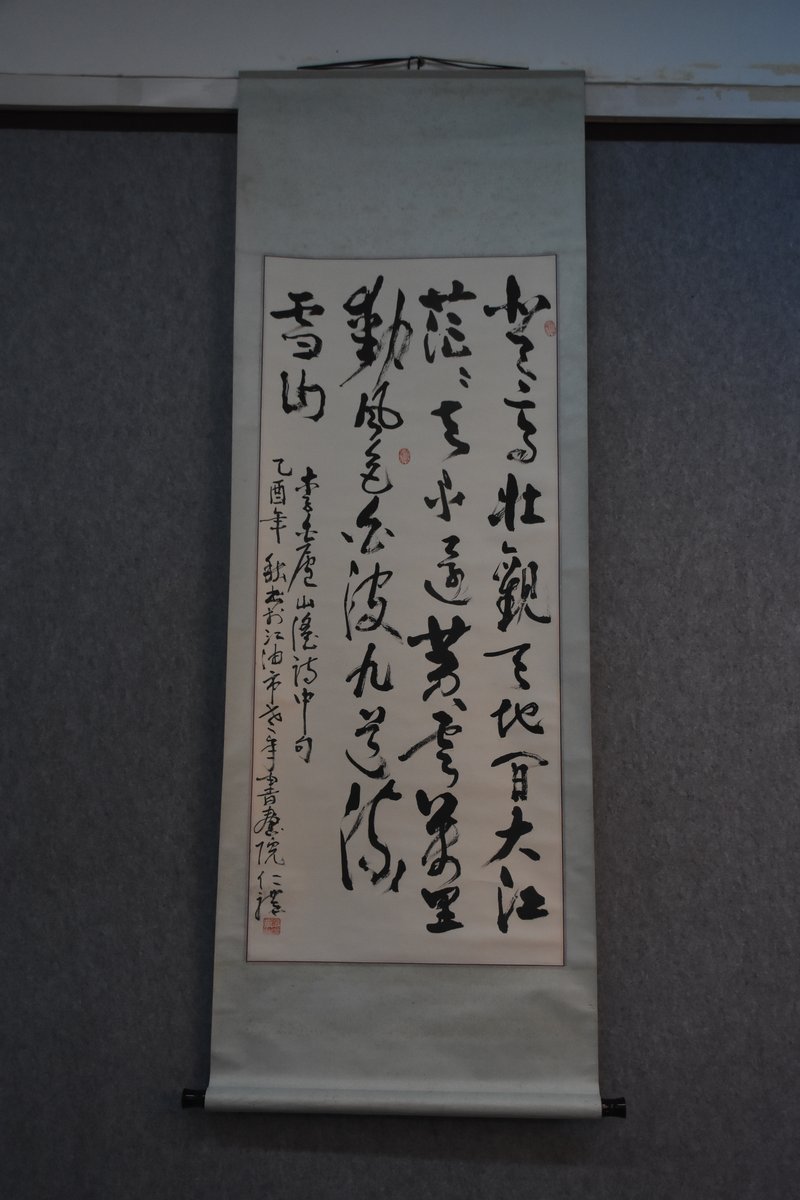 登高壮觀天地間大江
茫茫去不還黄雲萬里
動風色白波九道流
雪山
李白廬山謠詩中句
乙酉年秋書於江油市老年書畫院仁禮